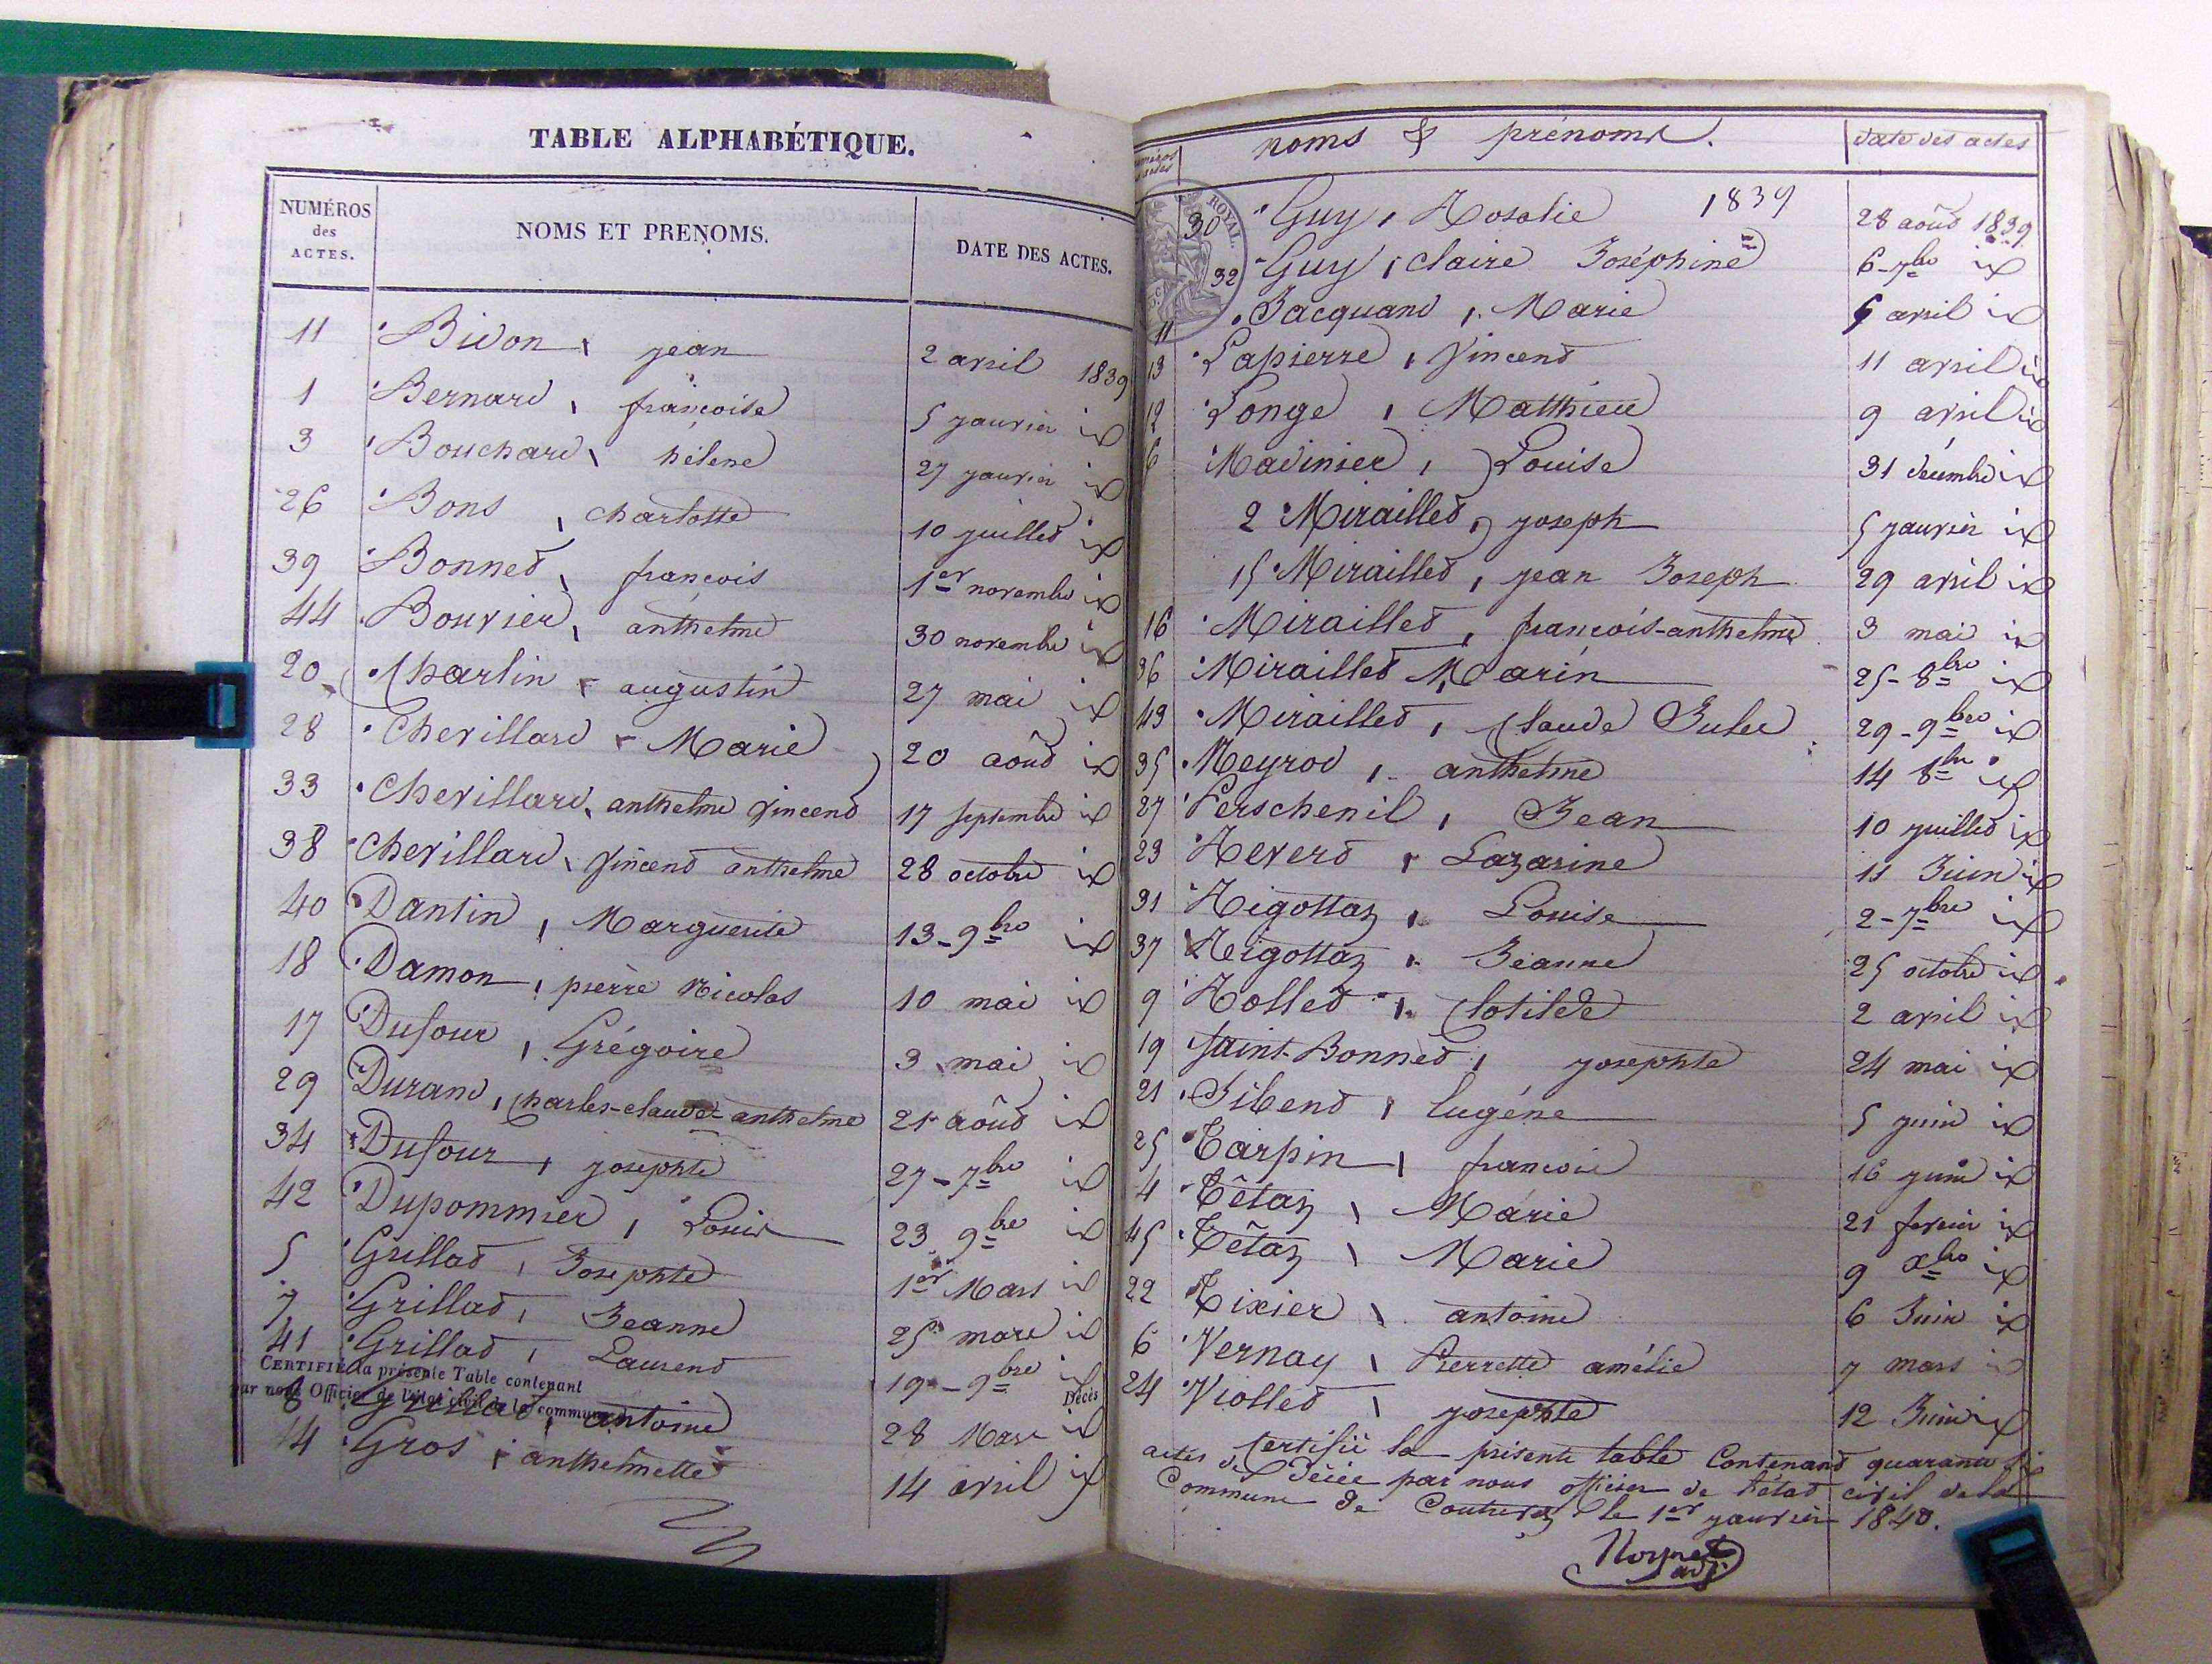 TABLE ALPHABÉTIQUE.
NUMÉROS des ACTES. NOMS ET PRENOMS. DATE DES ACTES.
11 Bidon, jean 2 avril 1839
1 Bernard, françoise 5 janvier id
3 Bouchard, hélene 27 janvier id
26 Bons, charlotte 10 juillet id
39 Bonnet, françois 1er novembre id
44 Bouvier, anthelme 30 novembre id
20 Charlin, augustin 27 mai id
28 Chevillard, Marie 20 août id
33 Chevillard, anthelme Vincent 17 septembre id
38 Chevillard, Vincent anthelme 28 octobre id
40 Dantin, Marguerite 13-9bre id
18 Damon, pierre Nicolas 10 mai id
17 Dufour, Grégoire 3 mai id
29 Durand, Charles-claude-anthelme 21 août id
34 Dufour, josephte 27-7bre id
42 Dupommier, Louis 23 9bre id
5 Grillat, Josephte 1er Mars id
7 Grillat, Jeanne 25 mars id
41 Grillat, Laurent 19-9bre id
CERTIFIÉ la présente Table contenant Décès
par nous Officier de l'état civil de la commune
8 Grillat, antoine 28 Mars id
14 Gros, anthelmette 14 avril id
numéros des actes noms & prénoms. date des actes
ROYAL.
30 Guy, Rosalie 1839 28 août 1839
32 Guy, claire Joséphine 6-7bre id
11 Jacquand, Marie 6 avril id
13 Lapierre, Vincent 11 avril id
12 Longe, Matthieu 9 avril id
6 Madinier, Louise 31 décembre id
2 Miraillet, joseph 5 janvier id
15 Miraillet, jean Joseph 29 avril id
16 Miraillet, françois-anthelme 3 mai id
36 Miraillet Marin 25-8bre id
43 Miraillet, Claude Jules 29-9bre id
35 Meyrod, anthelme 14 8bre id
27 Perschenil, Jean 10 juillet id
23 Reverd, Lazarine 11 Juin id
31 Rigottaz, Louise 2-7bre id
37 Rigottaz, Jeanne 25 octobre id
9 Rollet, Clotilde 2 avril id
19 Saint-Bonnet, josephte 24 mai id
21 Sibend, Eugéne 5 juin id
25 Tarpin, francois 16 juin id
4 Têtaz, Marie 21 fevrier id
45 Têtaz, Marie 9 xbre id
22 Tixier, antoine 6 Juin id
6 Vernay, Pierrette amélie 7 mars id
24 Viollet, josephte 12 Juin id
Certifié la présente table Contenant quarante six
actes de décès par nous officier de l'état civil de la
Commune de le 1er janvier 1840.
adj.